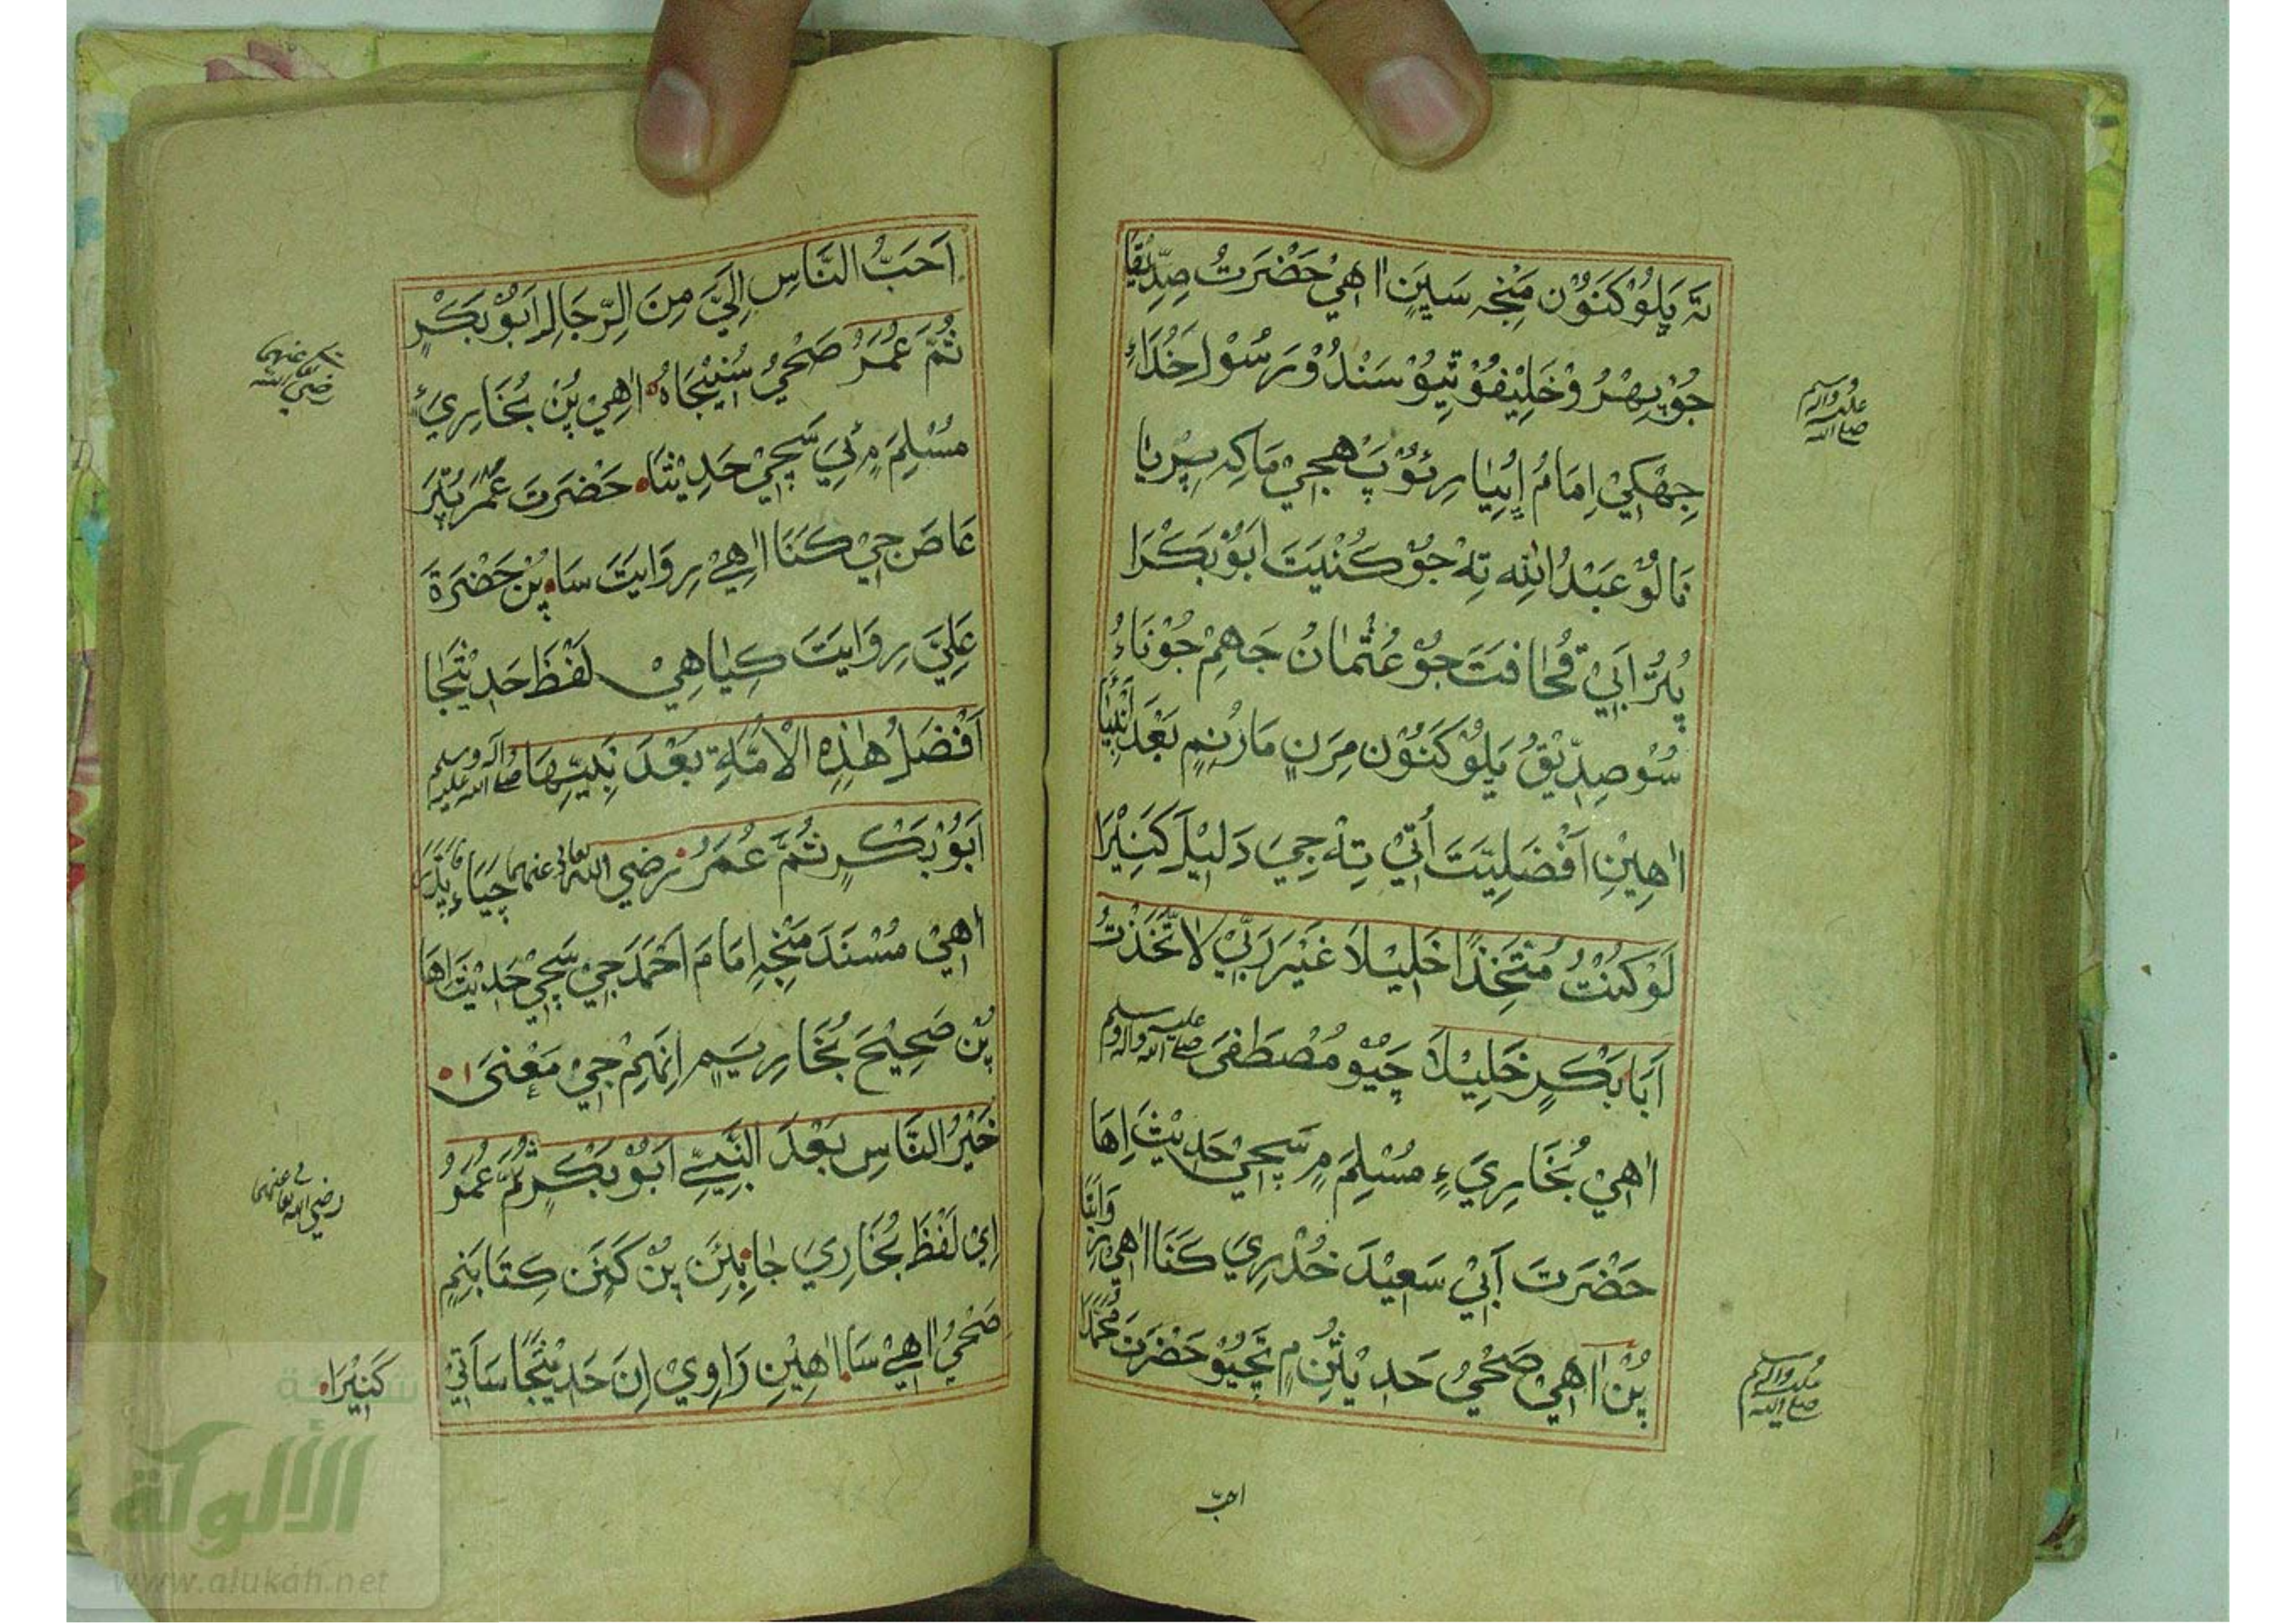 تَہ پَلُوْکَنَوُنْ مَنْجِہ سَيِنٍ اٰهِيْ حَضْرَتْ صِدِّيْقَا
جُوْ پِهْرُ وْ خَلِيْفُوْ تِيُوْ سَنْدُوْ رَسُوْلِ خُدَاءِ
صلى الله عليه واله وسلم
جِهْکِيْ اِمَامُ
نَالُوْ عَبْدُ اللهِ تِہْ جُوْ کُنْيَتَ اَبُوْبَکْرَا
پُٽُرْ اَبِيْ قُحَافَتَ جُوْ عُثْمَانُ جَهِمْ جُوْ نَاءُ
سُوْ صِدِّيْقُ پَلُوْکَنَوُنْ مِرَنِ مَارُنِمِ بَعْدَ اَنْبِيَا
اٰهِيْنِ اَفْضَلِيَّتَ اُتِيْ تِہْ جِيَ دَلِيْلَ کَنِيْرَا
لَوْ کُنْتُ مُتَّخِذًا خَلِيْلًا غَيْرَ رَبِّيْ لَاتَّخَذْتُ
اَبَا بَکْرٍ خَلِيْلًا چَيُوْ مُصْطَفٰى صلى الله عليه واله وسلم
اٰهِيْ بُخَارِيَ ءِ مُسْلِمَ مِ سَچِيْ حَدِيْثَ اِهَا
حَضْرَتَ اَبِيْ سَعِيْدَ خُدْرِيَ کَنَا اٰهِيْ رِوَايَتَا
پُنْ اٰهِيْ صَحْيُ حَدِيْثُنِ مِ تَچَيُوْ حَضْرَتَ مُحَمَّدَا
صلى الله عليه واله وسلم
احبّ
اَحَبُّ النَّاسِ اِلَيَّ مِنَ الرِّجَالِ اَبُوْبَکْرٍ
ثُمَّ عُمَرُ صَحْيُ سُنِيْجَاهُ اٰهِيْ پُنْ بُخَارِيَ ءِ
رضي الله عنهما
مُسْلِمَ مِ سَچِيْ حَدِيْثَا حَضْرَتَ عَمْرَ پُٽَرَ
عَاصَ جِيْ کَنَا اٰهِيْ رِوَايَتَ سَا پُنْ حَضْرَةَ
عَلِيَّ رِوَايَتَ کِيَا هِيْ لَفْظَ حَدِيْثَجَا
اَفْضَلُ هٰذِهِ الْاُمَّةِ بَعْدَ نَبِيِّهَا صلى الله عليه وآله وسلم
اَبُوْبَکْرٍ ثُمَّ عُمَرُ رضي الله تعالى عنهما
اٰهِيْ مُسْنَدَ مَنْجِہِ اِمَامَ اَحْمَدَ جِيْ سَچِيْ حَدِيْثَ اِهَا
پُنْ صَحِيْحَ بُخَارِيَ مِ اِنَهِمْ جِيْ مَعْنٰى ا
خَيْرُ النَّاسِ بَعْدَ النَّبِيِّ اَبُوْبَکْرٍ ثُمَّ عُمَرُ
رضي الله تعالى عنهما
اِيْ لَفْظَ بُخَارِيَ جَا پُنْ کِتَابَنِمِ
صَحْيُ اٰهِيْ سَا اٰهِيْنِ رَاوِيْ اِنَ حَدِيْثَجَا سَاتِيْ
کَنِيْرَا
شبكة
الألوكة
www.alukah.net